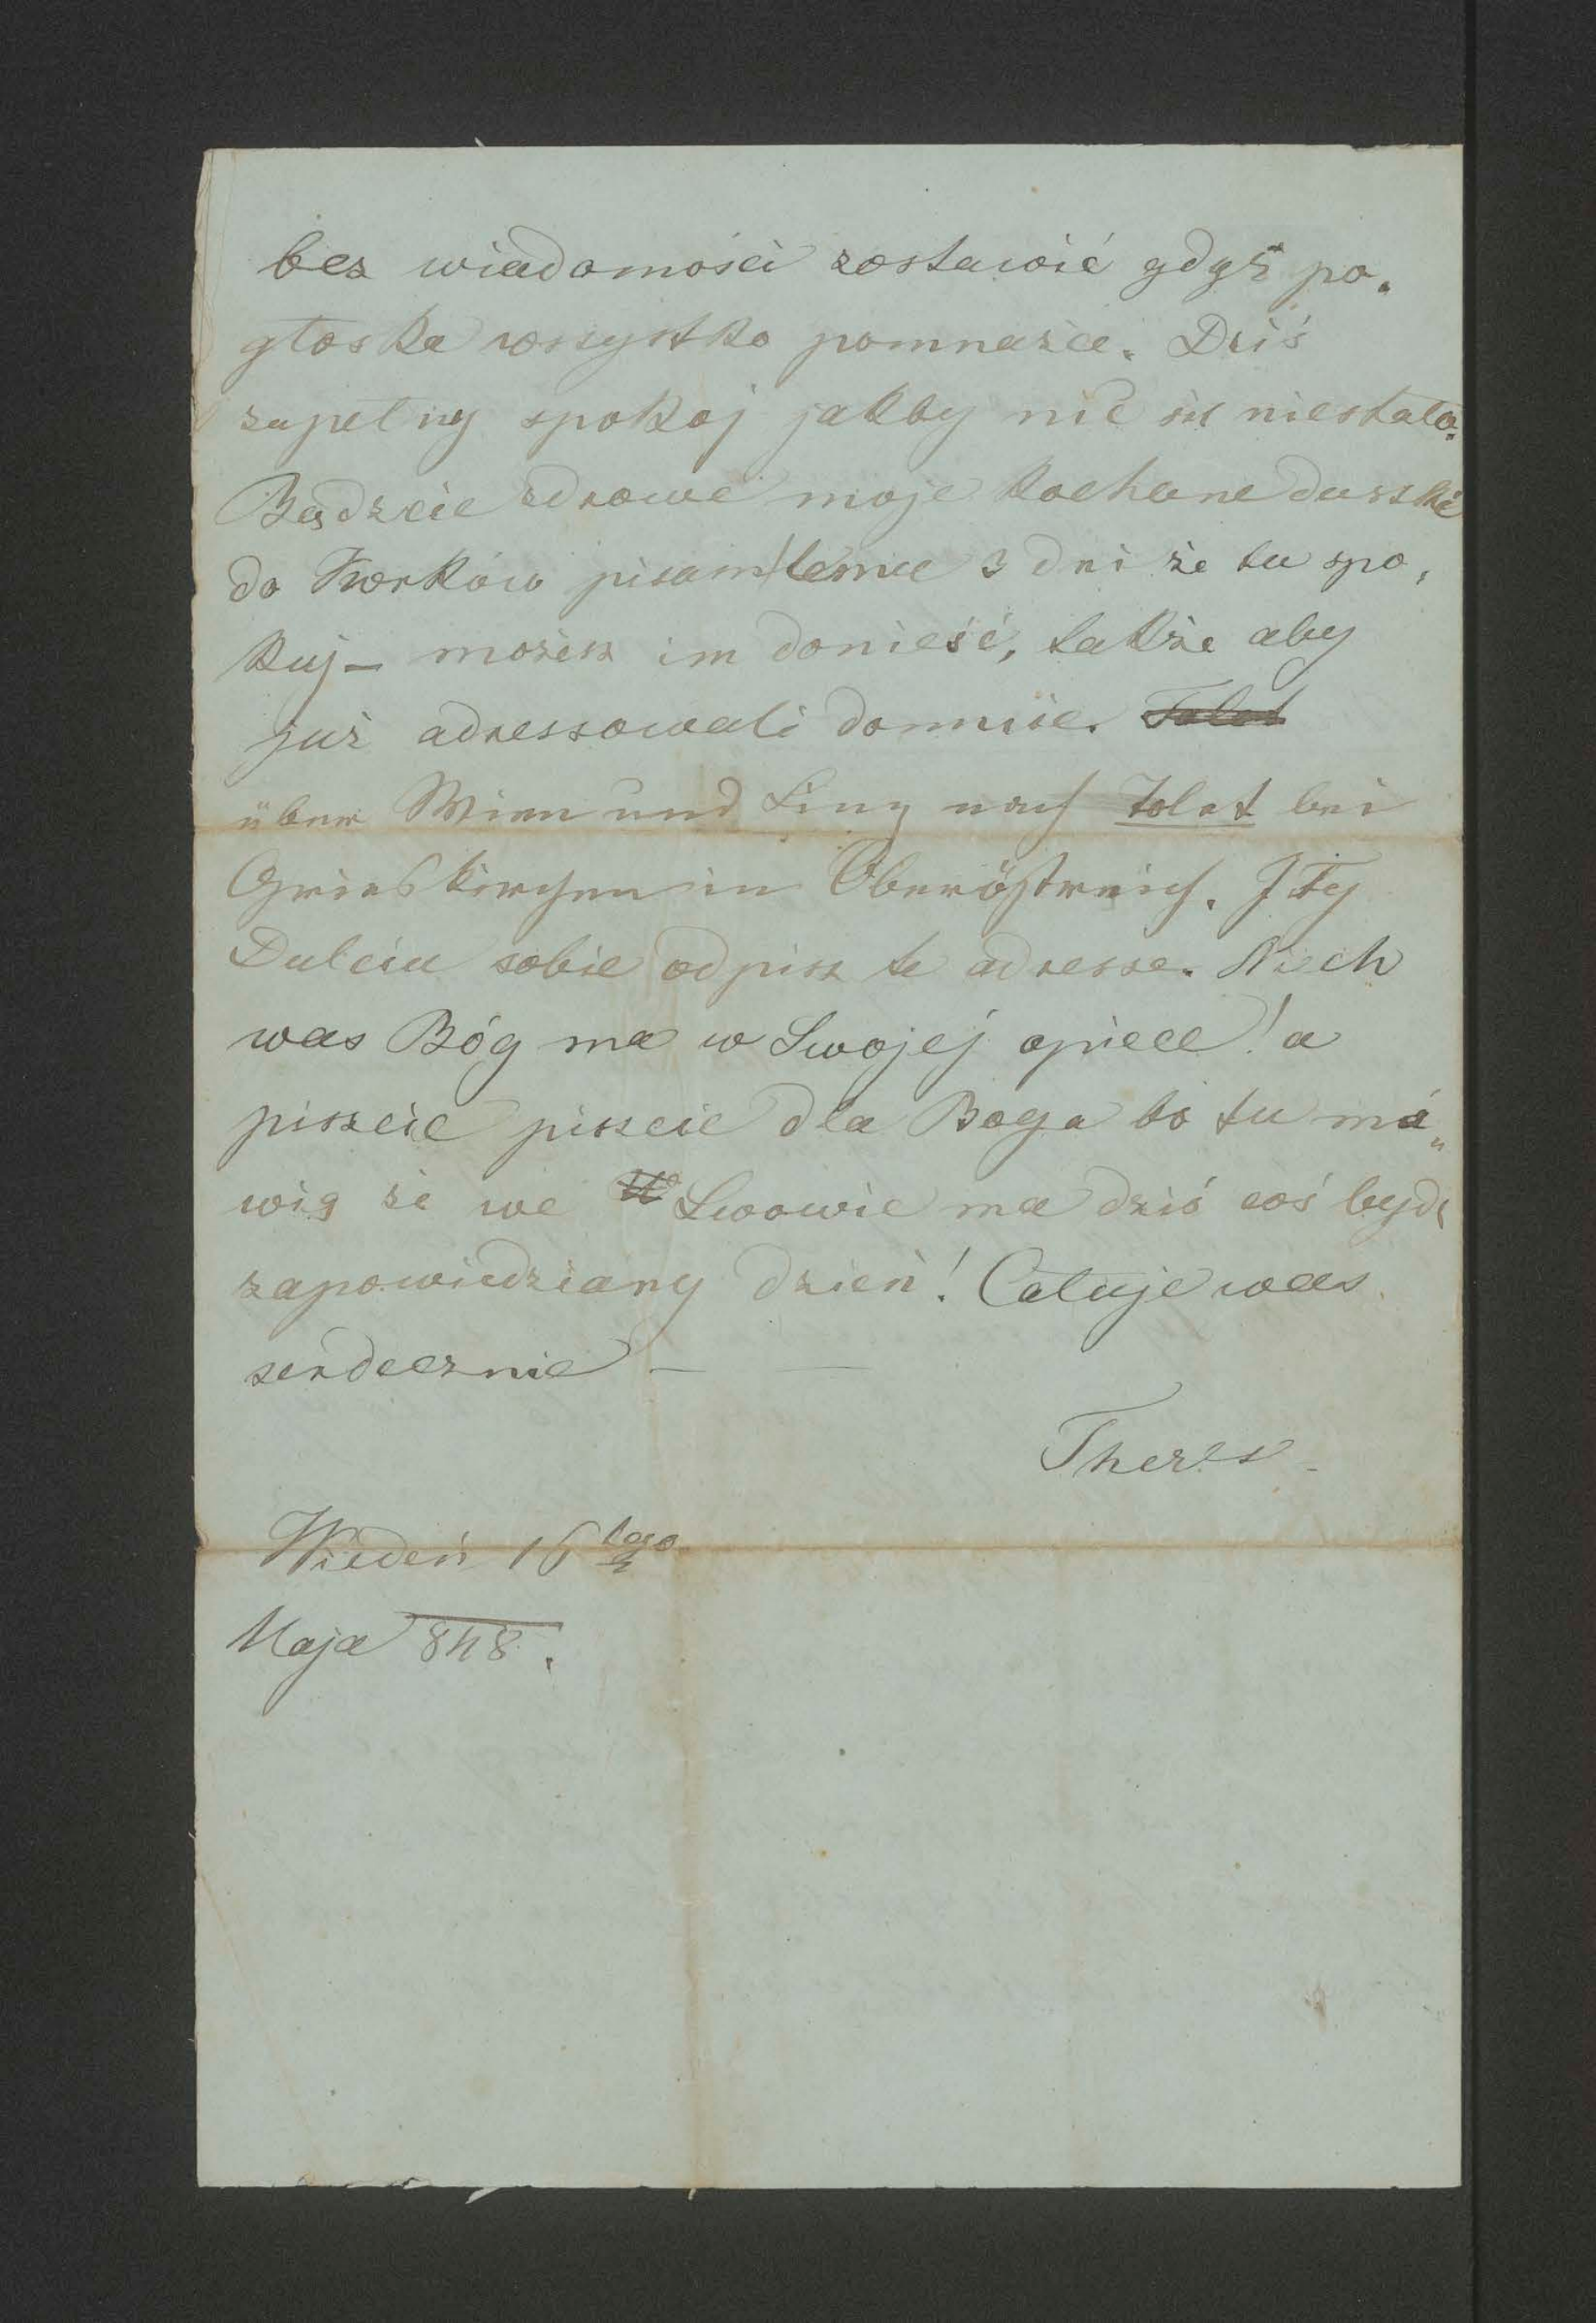 bez wiadomości zostawić gdyż po„
głoska wszystko pomnaża. Dziś
zupełny spokoj jakby nic się niestało.
Bądzcie zdrowe moje kochane duszki
do Tworków pisałam temu 3 dni że tu spo„
kuj – możesz im donieść, także aby
już adressowali domnie. Tolet
über Wien und Linz nach Tolet bei
Grieskirchen in Oberöstreich. I Ty
Dulciu sobie odpisz te adresse. Niech
was Bóg ma w Swojej opiece! a
piszcie piszcie dla Boga bo tu mó„
wią że we Lwowie ma dziś coś bydź
zapowiedziany dzień! Całuje was
serdecznie –
Theres
Wiedeń 16tego
Maja 848.